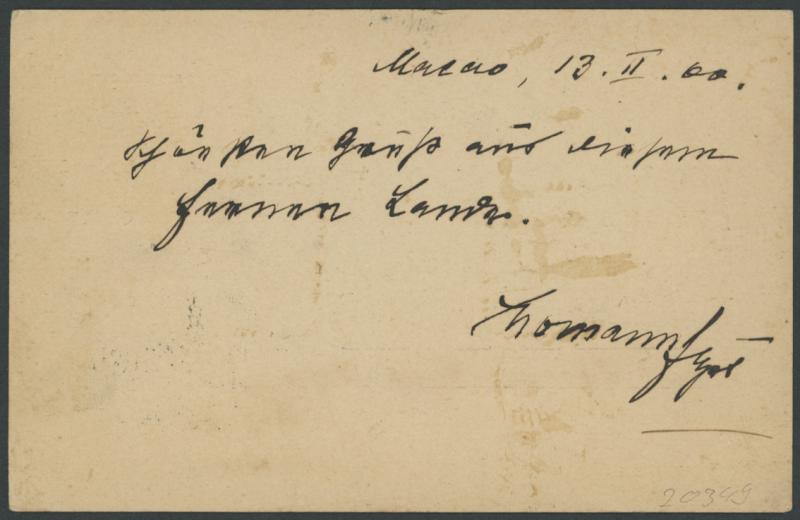 Macao, 13. II. 00.
Schönsten Gruß aus diesem
fernen Lande.
20349